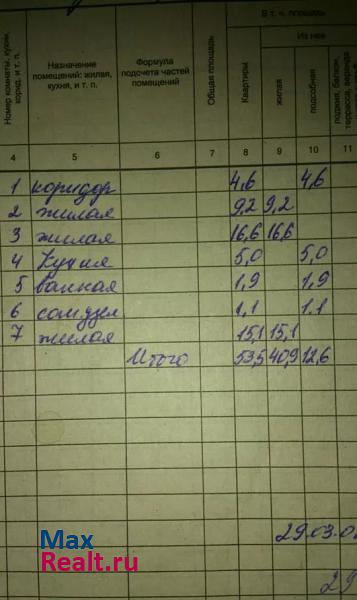 В т. ч. площадь
Из нее
Номер комнаты, кухни, корид. и т. п.
Назначение помещений: жилая, кухня, и т. п.
Формула подсчета частей помещений
Общая площадь
Квартиры
жилая
подсобная
лоджия, балкон, терраса, веранда
4 5 6 7 8 9 10 11
1 коридор 4,6 4,6
2 жилая 9,2 9,2
3 жилая 16,6 16,6
4 Кухня 5,0 5,0
5 ванная 1,9 1,9
6 сан.узел 1,1 1.1
7 жилая 15,1 15,1
Итого 53,5 40,9 12,6
29.03.0
29
Max
Realt.ru